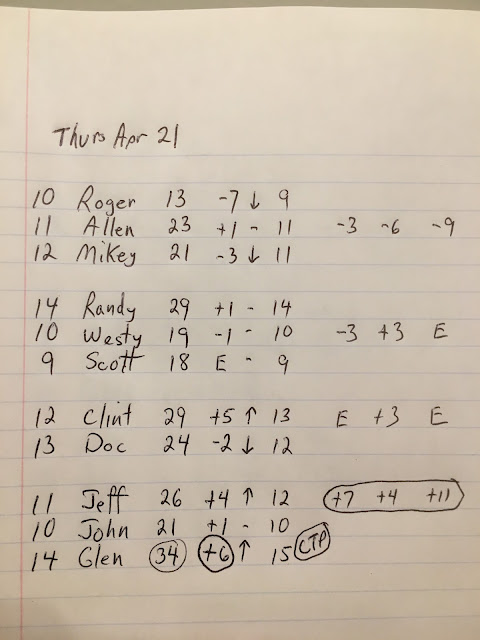 Thurs Apr 21
10 Roger 13 -7 ↓ 9
11 Allen 23 +1 - 11 -3 -6 -9
12 Mikey 21 -3 ↓ 11
14 Randy 29 +1 - 14
10 Westy 19 -1 - 10 -3 +3 E
9 Scott 18 E - 9
12 Clint 29 +5 ↑ 13 E +3 E
13 Doc 24 -2 ↓ 12
11 Jeff 26 +4 ↑ 12 +7 +4 +11
10 John 21 +1 - 10
14 Glen 34 +6 ↑ 15 CTP